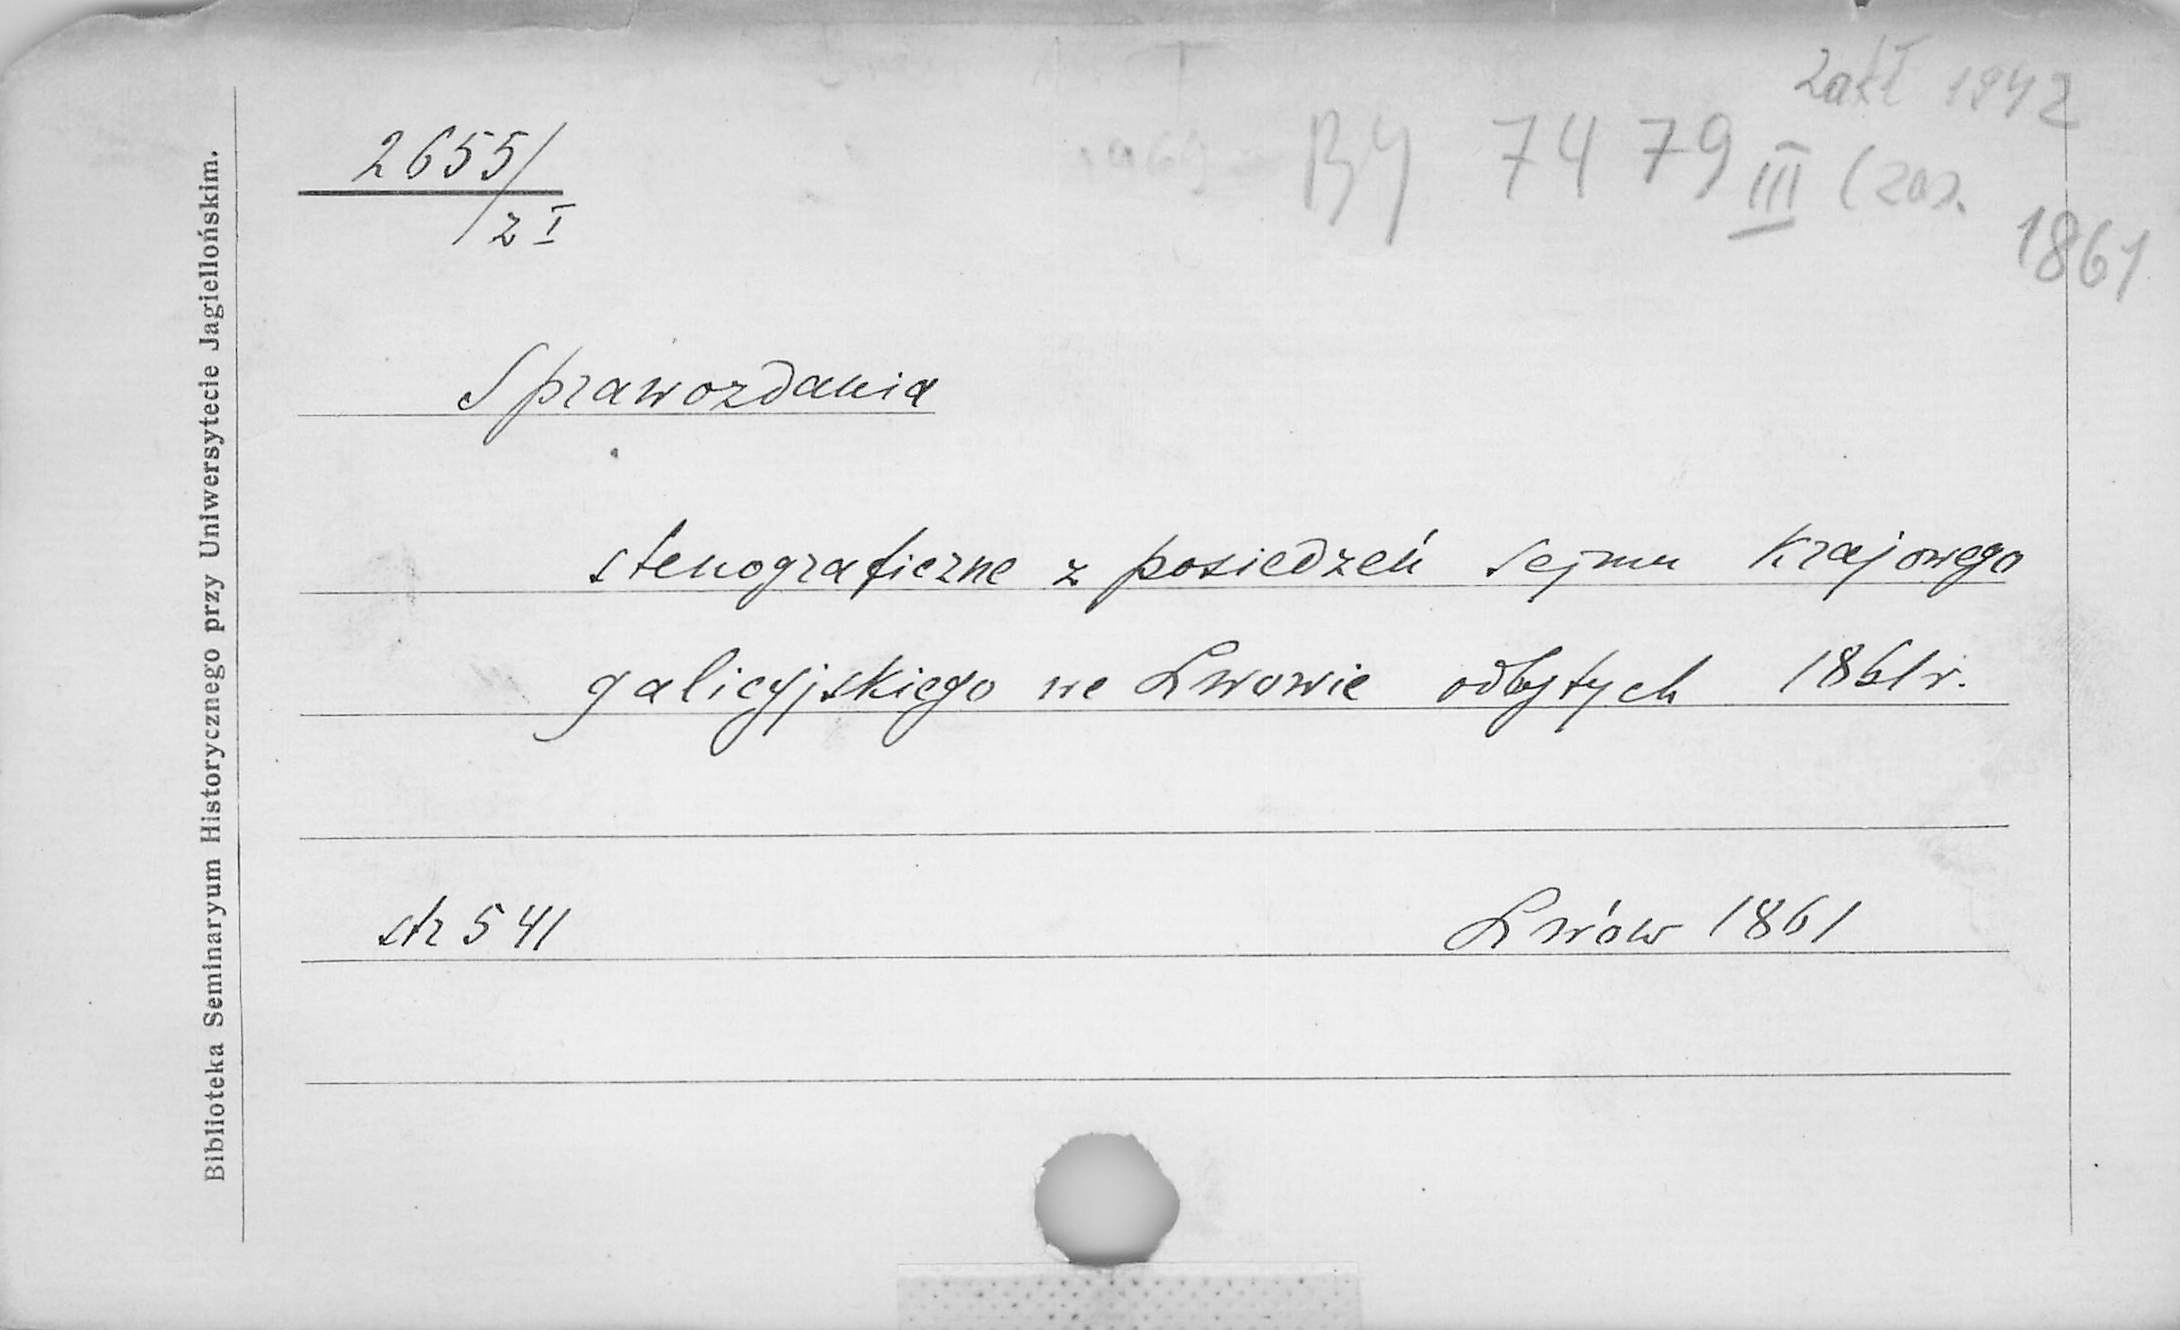 zakł 1942
2655/
z I
BJ 7479 III (zas.
1861
Sprawozdania
stenograficzne z posiedzeń sejmu krajowego
galicyjskiego we Lwowie odbytych 1861 r.
str 541 Lwów 1861
Biblioteka Seminaryum Historycznego przy Uniwersytecie Jagiellońskim.